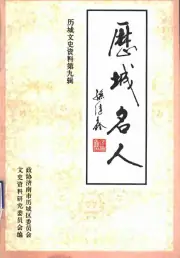 历城文史资料第九辑
歷城名人
政协济南市历城区委员会
文史资料研究委员会编